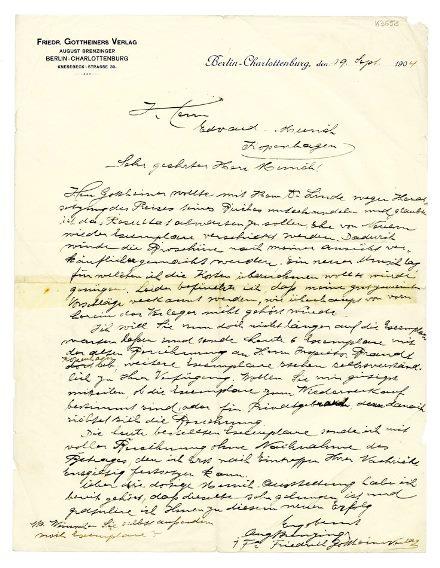 K3652
FRIEDR. GOTTHEINERS VERLAG
AUGUST BRENZINGER
BERLIN-CHARLOTTENBURG
KNESEBECK-STRASSE
Berlin-Charlottenburg, den 19. Sept. 1904
Edvard Munch
Kopenhagen
Sehr geehrter Herr Munch!
Herr Gottheiner wollte mit Herrn Dr. Linde wegen Herab
setzung des Preises seines Buches unterhandeln und glaubte
ich das Resultat abwarten zu sollen, ehe von Neuem
wieder Exemplare verschickt werden. Dadurch
würde die Broschüre nach meiner Ansicht ver-
käuflicher gemacht werden. Ein neuer Umschlag
für welchen ich die Kosten übernehmen wollte würde
genügen. Leider befürchte ich daß meine gutgemeinten
Vorschläge verkannt werden, wie überhaupt von vorn
herein der Verleger nicht gehört wurde.
Ich will Sie nun doch nicht länger auf die Exemplare
warten lassen und sende heute 6 Exemplare mit
der alten Berechnung an Herrn
weitere Exemplare stehen selbstverständ-
lich zu Ihrer Verfügung. Wollen Sie mir gütigst
mitteilen ob die Exemplare zum Wiederverkauf
bestimmt sind, oder für
richtet sich die Berechnung.
Die heute bestellten Exemplare sende ich mit
voller Berechnung ohne Nachnahme des
Betrages, den ich erst nach Eintreffen Ihrer Nachricht
Endgiltig festsetzen kann.
Ueber die dortige Munch-Ausstellung habe ich
bereits gehört, daß dieselbe sehr schön ist und
gratuliere ich Ihnen zu diesem neuen Erfolg
Ergebenst
Aug Brenzinger
Friedrich Gottheiners Verlag
Sie selbst außerdem
noch Exemplare?